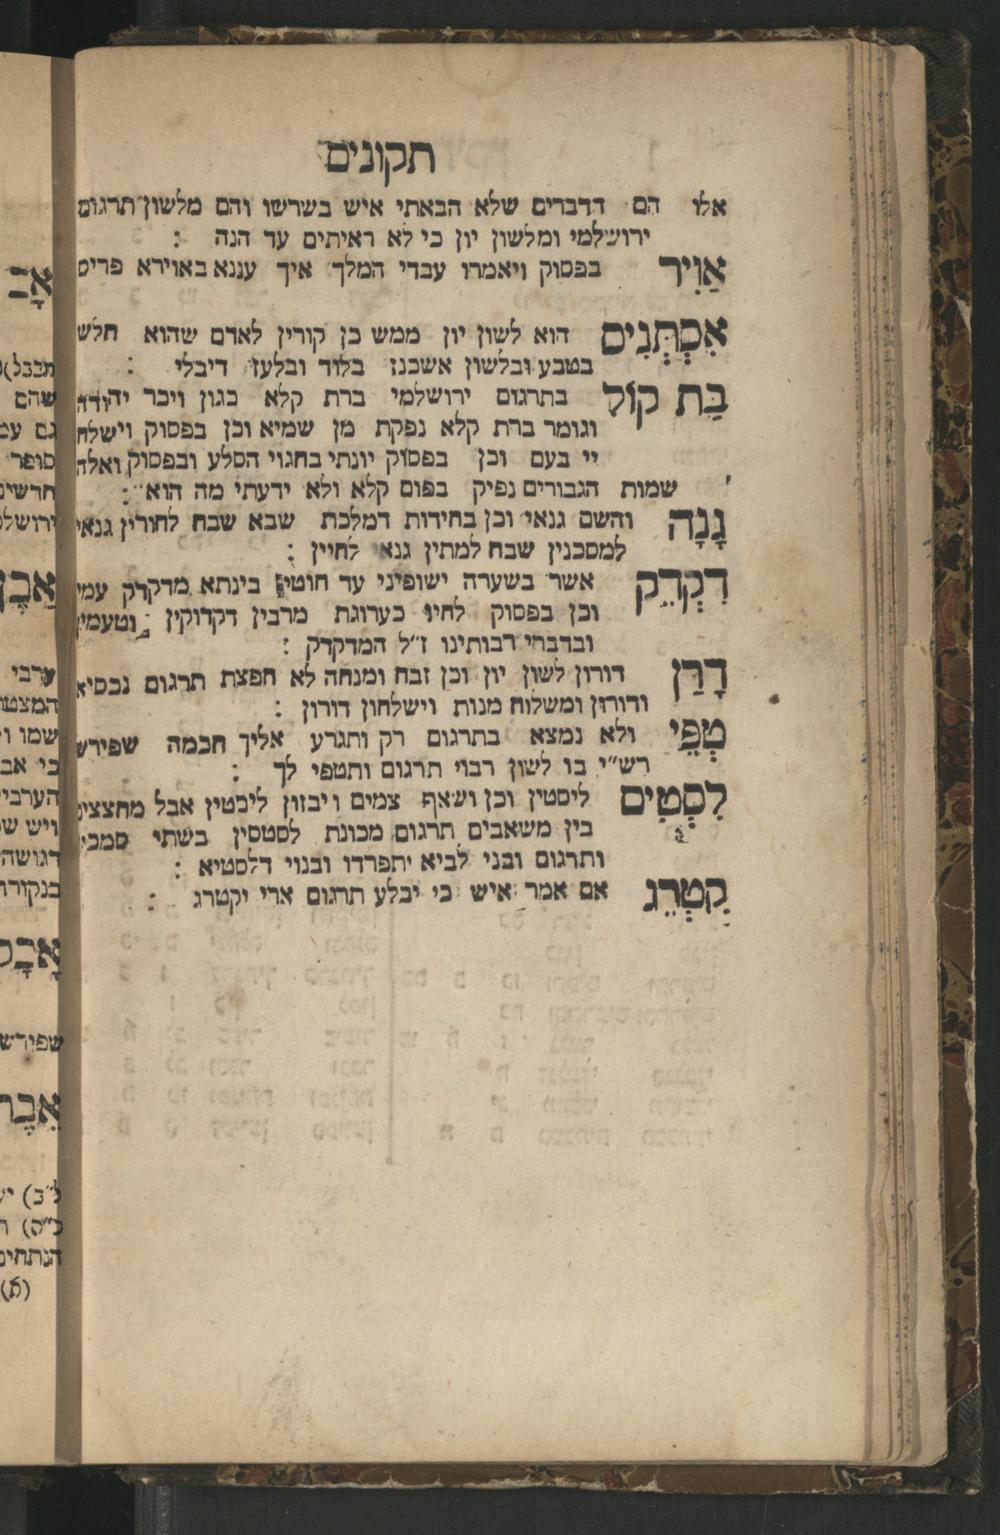 תקונים
אלו הם הדברים שלא הבאתי איש בשרשו והם מלשון תרגום
ירושלמי ומלשון יון כי לא ראיתים עד הנה :
אַוִיר בפסוק ויאמרו עבדי המלך איך עננא באוירא פריס
אִסְתְּנִיס הוא לשון יון ממש כן קורין לאדם שהוא חלש
בטבע ובלשון אשכנז בלוד ובלעז דיבלי :
בַּת קוֹל בתרגום ירושלמי ברת קלא כגון ויכר יהודה
וגומר ברת קלא נפקת מן שמיא וכן בפסוק וישלח
יי בעם וכן בפסוק יונתי בחגוי הסלע ובפסוק ואלה
שמות הגבורים נפיק בפום קלא ולא ידעתי מה הוא :
גָנָה והשם גנאי וכן בחידות דמלכת שבא שבח לחורין גנאי
למסכנין שבח למתין גנא לחיין :
דִקְדֵק אשר בשערה ישופיני עד חוטי בינתא מדקדק עמי
וכן בפסוק לחיו כערוגת מרבין דקדוקין וטעמין
ובדברי רבותינו ז״ל המדקדק :
דָרַן דורון לשון יון וכן זבח ומנחה לא חפצת תרגום נכסיא
ודורון ומשלוח מנות וישלחון דורון :
טְפֵי ולא נמצא בתרגום רק ותגרע אליך חכמה שפירש
רש״י בו לשון רבוי תרגום ותטפי לך :
לִסְטִים ליסטין וכן ושאף צמים ויבזון ליסטין אבל מחצצים
בין משאבים תרגום מכונת לסטסין בשתי סמכי
ותרגום ובני לביא יתפרדו ובנוי דלסטיא :
קִטְרֵג אם אמר איש כי יבלע תרגום ארי יקטרג :